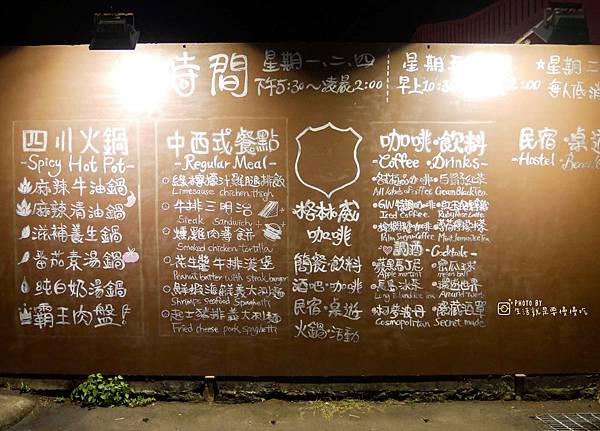 時間
星期一、二、四
下午5:30～凌晨2:00
星期五
早上10:3
2:00
★星期三
每人低消
四川火鍋
-Spicy Hot Pot-
麻辣牛油鍋
麻辣清油鍋
滋補養生鍋
番茄素湯鍋
純白奶湯鍋
霸王肉盤
中西式餐點
-Regular Meal-
綠檸檬汁雞腿排飯
Limesauce chicken thigh
牛排三明治
Steak Sandwich
燻雞肉薄餅
Smoked chicken tortilla
花生醬牛排漢堡
Peanut butter with steak burger
鮮蝦海鮮義大利麵
Shrimps Seafood Spaghetti
起士豬排義大利麵
Fried cheese pork spaghetti
格林威
咖啡
簡餐·飲料
酒吧·咖啡
民宿·桌遊
火鍋·活動
咖啡·飲料
-Coffee·Drinks-
All kinds of Coffee
Iced Coffee
Palm Sugar Coffee
調酒
-Cocktails-
蘋果馬丁尼
Apple martini
蜜瓜球
melon ball
長島冰茶
Long Island ice tea
環遊世界
Around the world
柯夢波丹
Cosmopolitan
隱藏酒單
Secret made
民宿·桌遊
-Hostel·
PHOTO BY
生活就是要慢慢吃